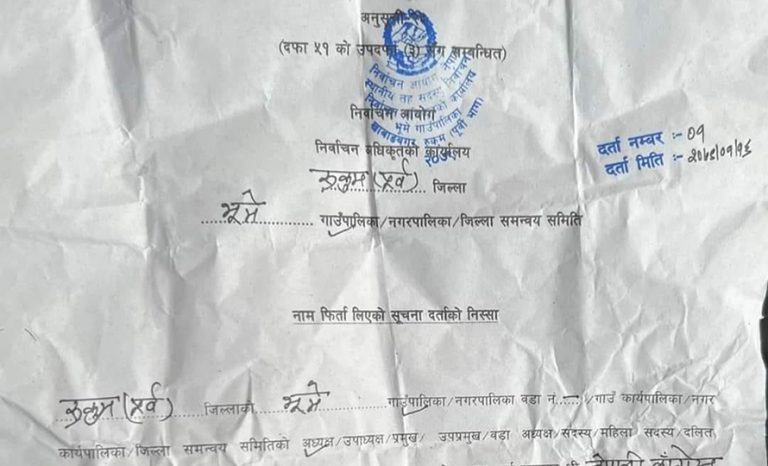 अनुसूची-
(दफा ५१ को उपदफा (३) सँग सम्बन्धित)
निर्वाचन आयोग
निर्वाचन अधिकृतको कार्यालय
रुकुम (पूर्व) जिल्ला
भूमे गाउँपालिका/नगरपालिका/जिल्ला समन्वय समिति
निर्वाचन आयोग
स्थानीय तह सदस्य निर्वाचन
निर्वाचन को कार्यालय
भूमे गाउँपालिका
खाबाङबगर रुकुम (पूर्वी भाग)
दर्ता नम्बर :- ०१
दर्ता मिति :- २०७९/०१/१६
नाम फिर्ता लिएको सूचना दर्ताको निस्सा
रुकुम (पूर्व) जिल्लाको भूमे गाउँपालिका/नगरपालिका वडा नं..../गाउँ कार्यपालिका/नगर
कार्यपालिका/जिल्ला समन्वय समितिको अध्यक्ष/उपाध्यक्ष/प्रमुख/ उपप्रमुख/वडा अध्यक्ष/सदस्य/महिला सदस्य/दलित
नेपाली काँग्रेस